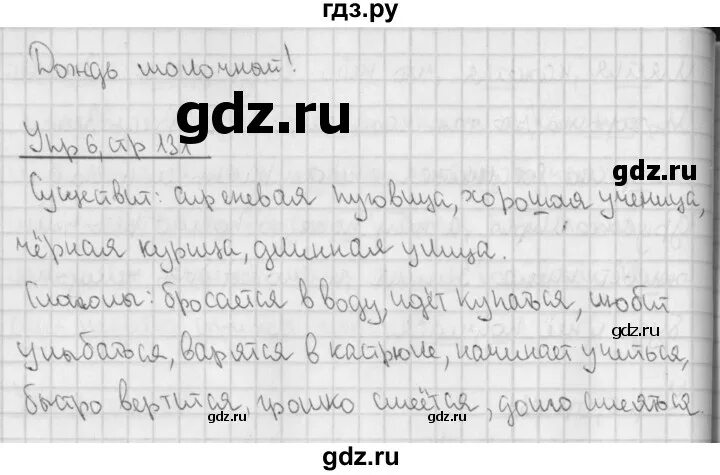 гдз.ру
Дождь молочный!
gdz.ru
Упр 6, стр 131
gdz.ru
Существит: сиреневая пуговица, хорошая ученица,
чёрная курица, длинная улица.
Глаголы: бросается в воду, идёт купаться, любит
gdz.ru
улыбаться, варятся в кастрюле, начинает учиться,
быстро вертится, громко смеётся, долго смеяться.
gdz.ru
gdz.ru
gdz.ru